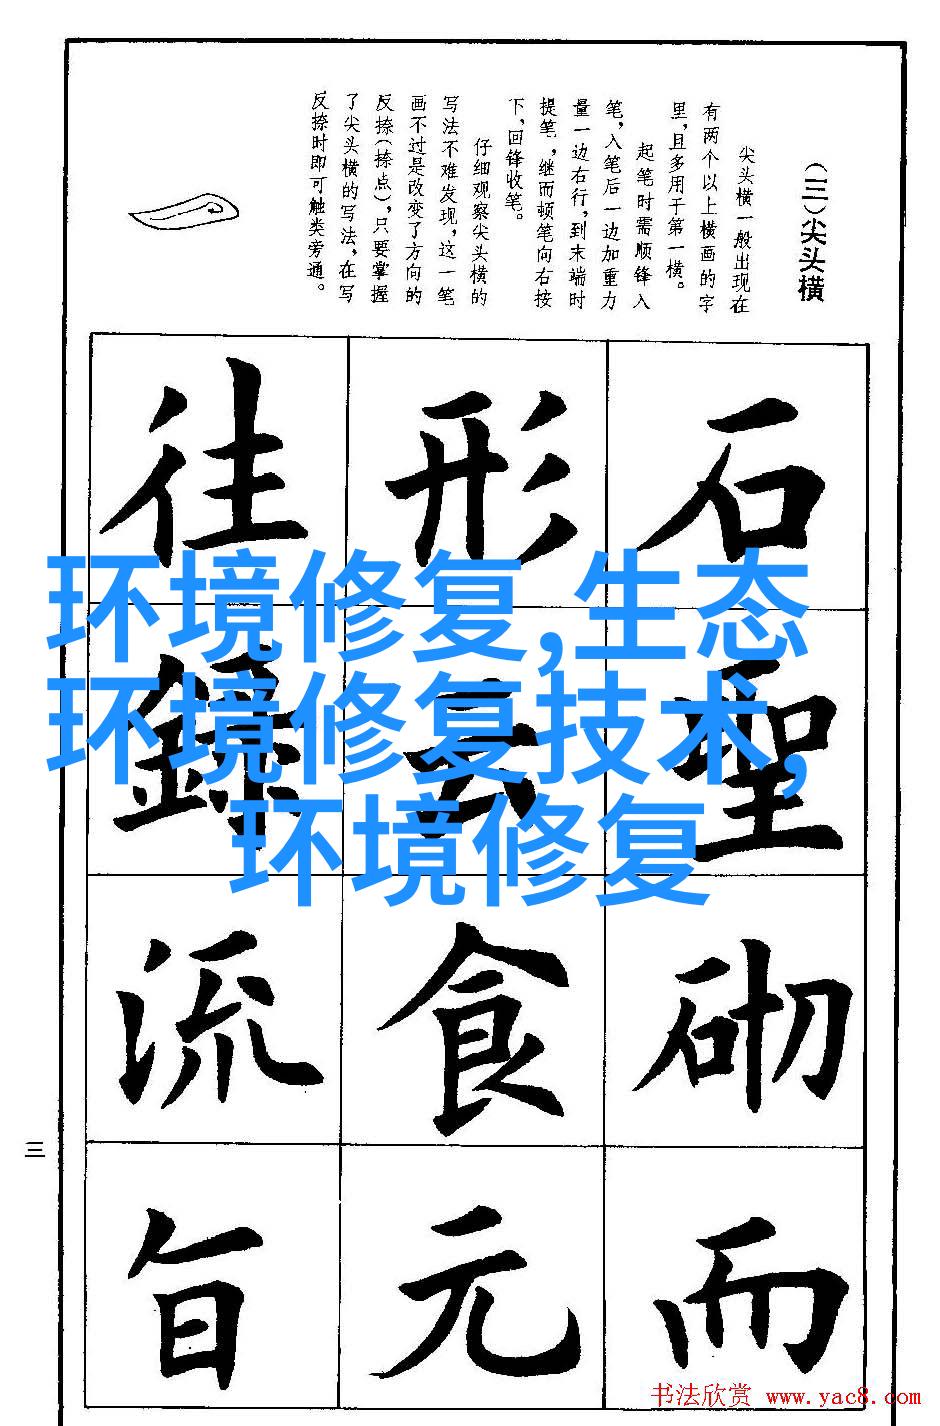 （三）尖头横
尖头横一般出现在
有两个以上横画的字
里，且多用于第一横。
起笔时需顺锋入
笔，入笔后一边加重力
量一边右行，到末端时
提笔，继而顿笔向右按
下，回锋收笔。
仔细观察尖头横的
写法不难发现，这一笔
画不过是改变了方向的
反捺（捺点），只要掌握
了尖头横的写法，在写
反捺时即可触类旁通。
石
聖
砌
而
形
云
食
元
往
錄
流
旨
环境修复,生态
环境修复技术,
环境修复
三
书法欣赏 www.yac8.com